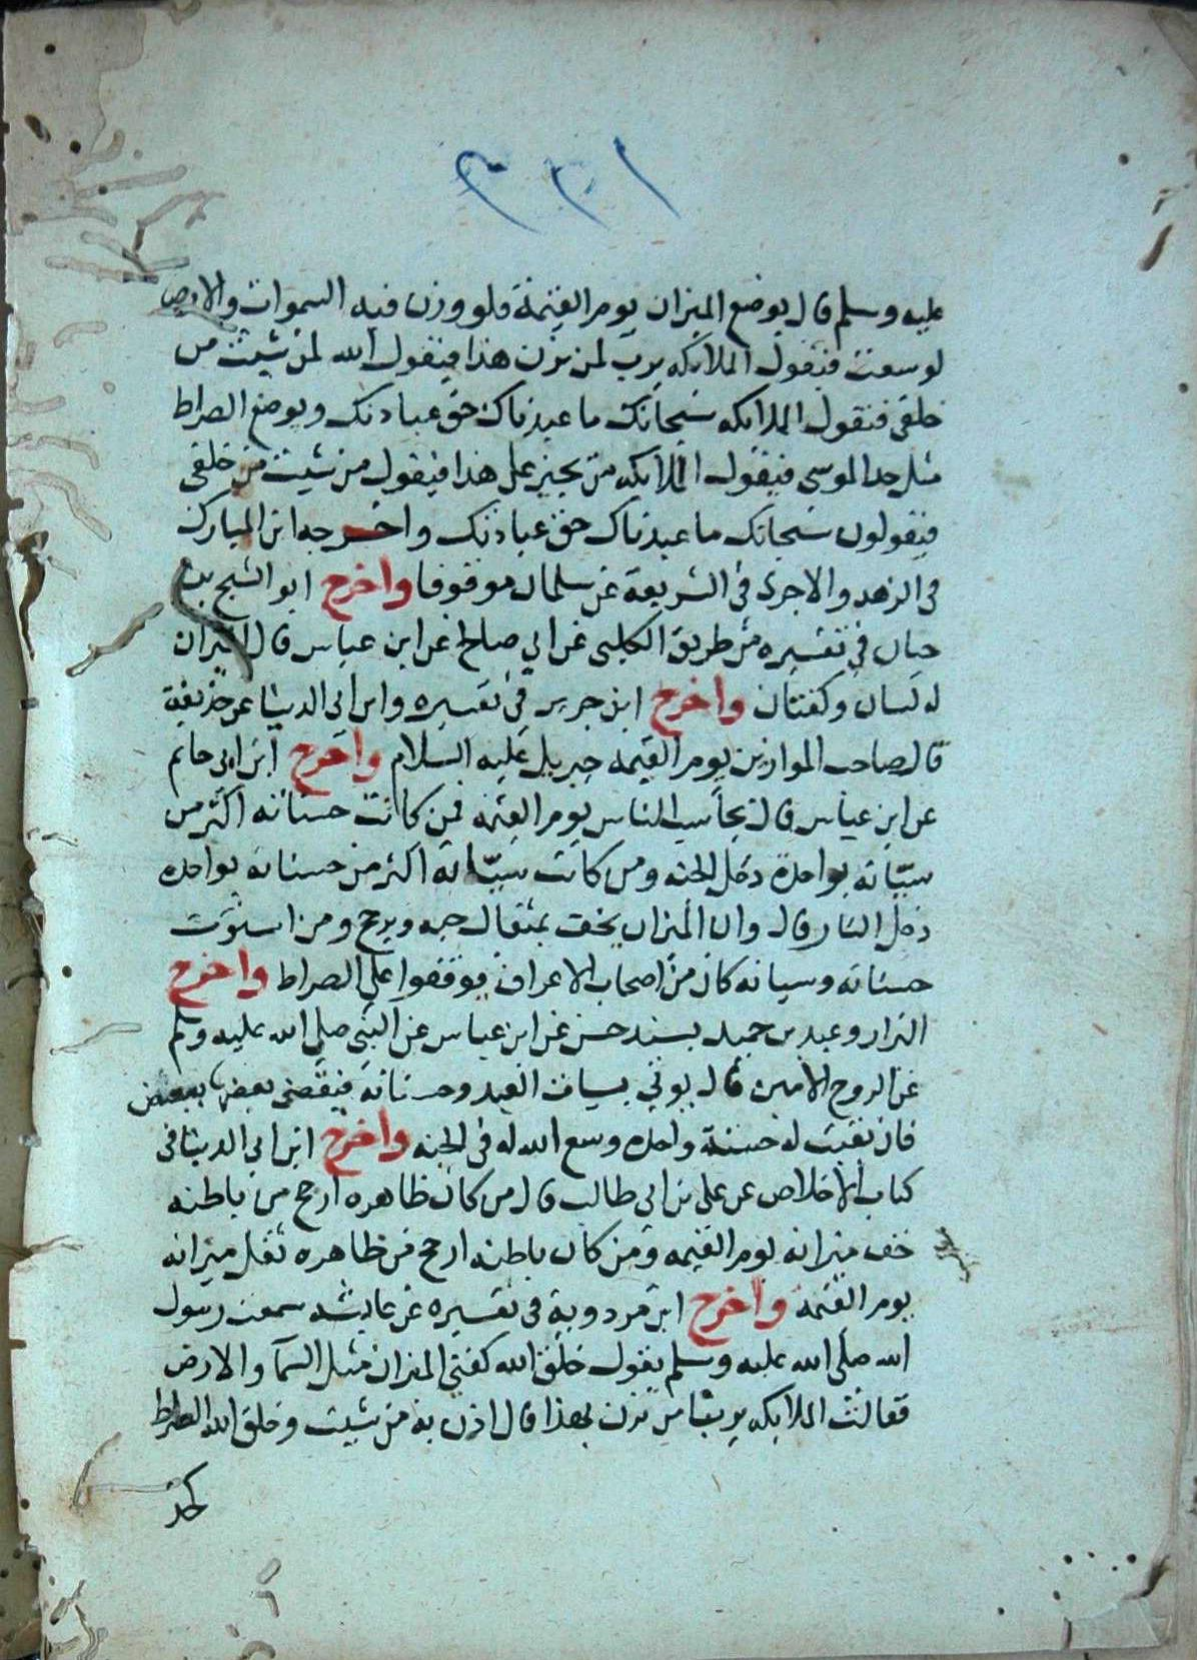 عليه وسلم قال يوضع الميزان يوم القيمة فلو وزن فيه السموات والارض
لوسعت فتقول الملايكه يرب لمن يزن هذا فيقول الله لمن شيت من
خلقي فتقول الملايكه سبحانك ما عبدناك حق عبادتك ويوضع الصراط
مثل حد الموسى فيقول الملايكه من يجيز على هذا فيقول من شيت من خلقي
فيقولون سبحانك ما عبدناك حق عبادتك واخرجه ابن المبارك
في الزهد والاجرى في الشريعة عن سلمان موقوفا واخرج ابو الشيخ بن
حيان في تفسيره من طريق الكلبى عن ابي صالح عن ابن عباس قال الميزان
له لسان وكفتان واخرج ابن جرير في تفسيره وابن ابى الدنيا عن حذيفة
قال صاحب الموازين يوم القيمه جبريل عليه السلام واخرج ابن ابى حاتم
عن ابن عباس قال يحاسب الناس يوم القيمه فمن كانت حسناته اكثر من
سيّاته بواحدة دخل الجنه ومن كانت سيّاته اكثر من حسناته بواحده
دخل النار قال وان الميزان يخف بمثقال حبه ويرجح ومن استوت
حسناته وسياته كان من اصحاب الاعراف فوقفوا على الصراط واخرج
البزار وعبد بن حميد بسند حسن عن ابن عباس عن النبى صلى الله عليه وسلم
عن الروح الامين قال يوتي بسيات العبد وحسناته فيقضى بعضها ببعض
فان بقيت له حسنة واحده وسع الله له في الجنه واخرج ابن ابي الدنيا في
كتاب الاخلاص عن على بن ابى طالب قال من كان ظاهره ارجح من باطنه
خف ميزانه يوم القيمه ومن كان باطنه ارجح من ظاهره ثقل ميزانه
يوم القيمة واخرج ابن مردوية في تفسيره عن عايشه سمعت رسول
الله صلى الله عليه وسلم يقول خلق الله كفتى الميزان مثل السمآ والارض
فقالت الملايكه يربنا من تزن بهذا قال ازن به من شيت وخلق الله الصراط
كحد